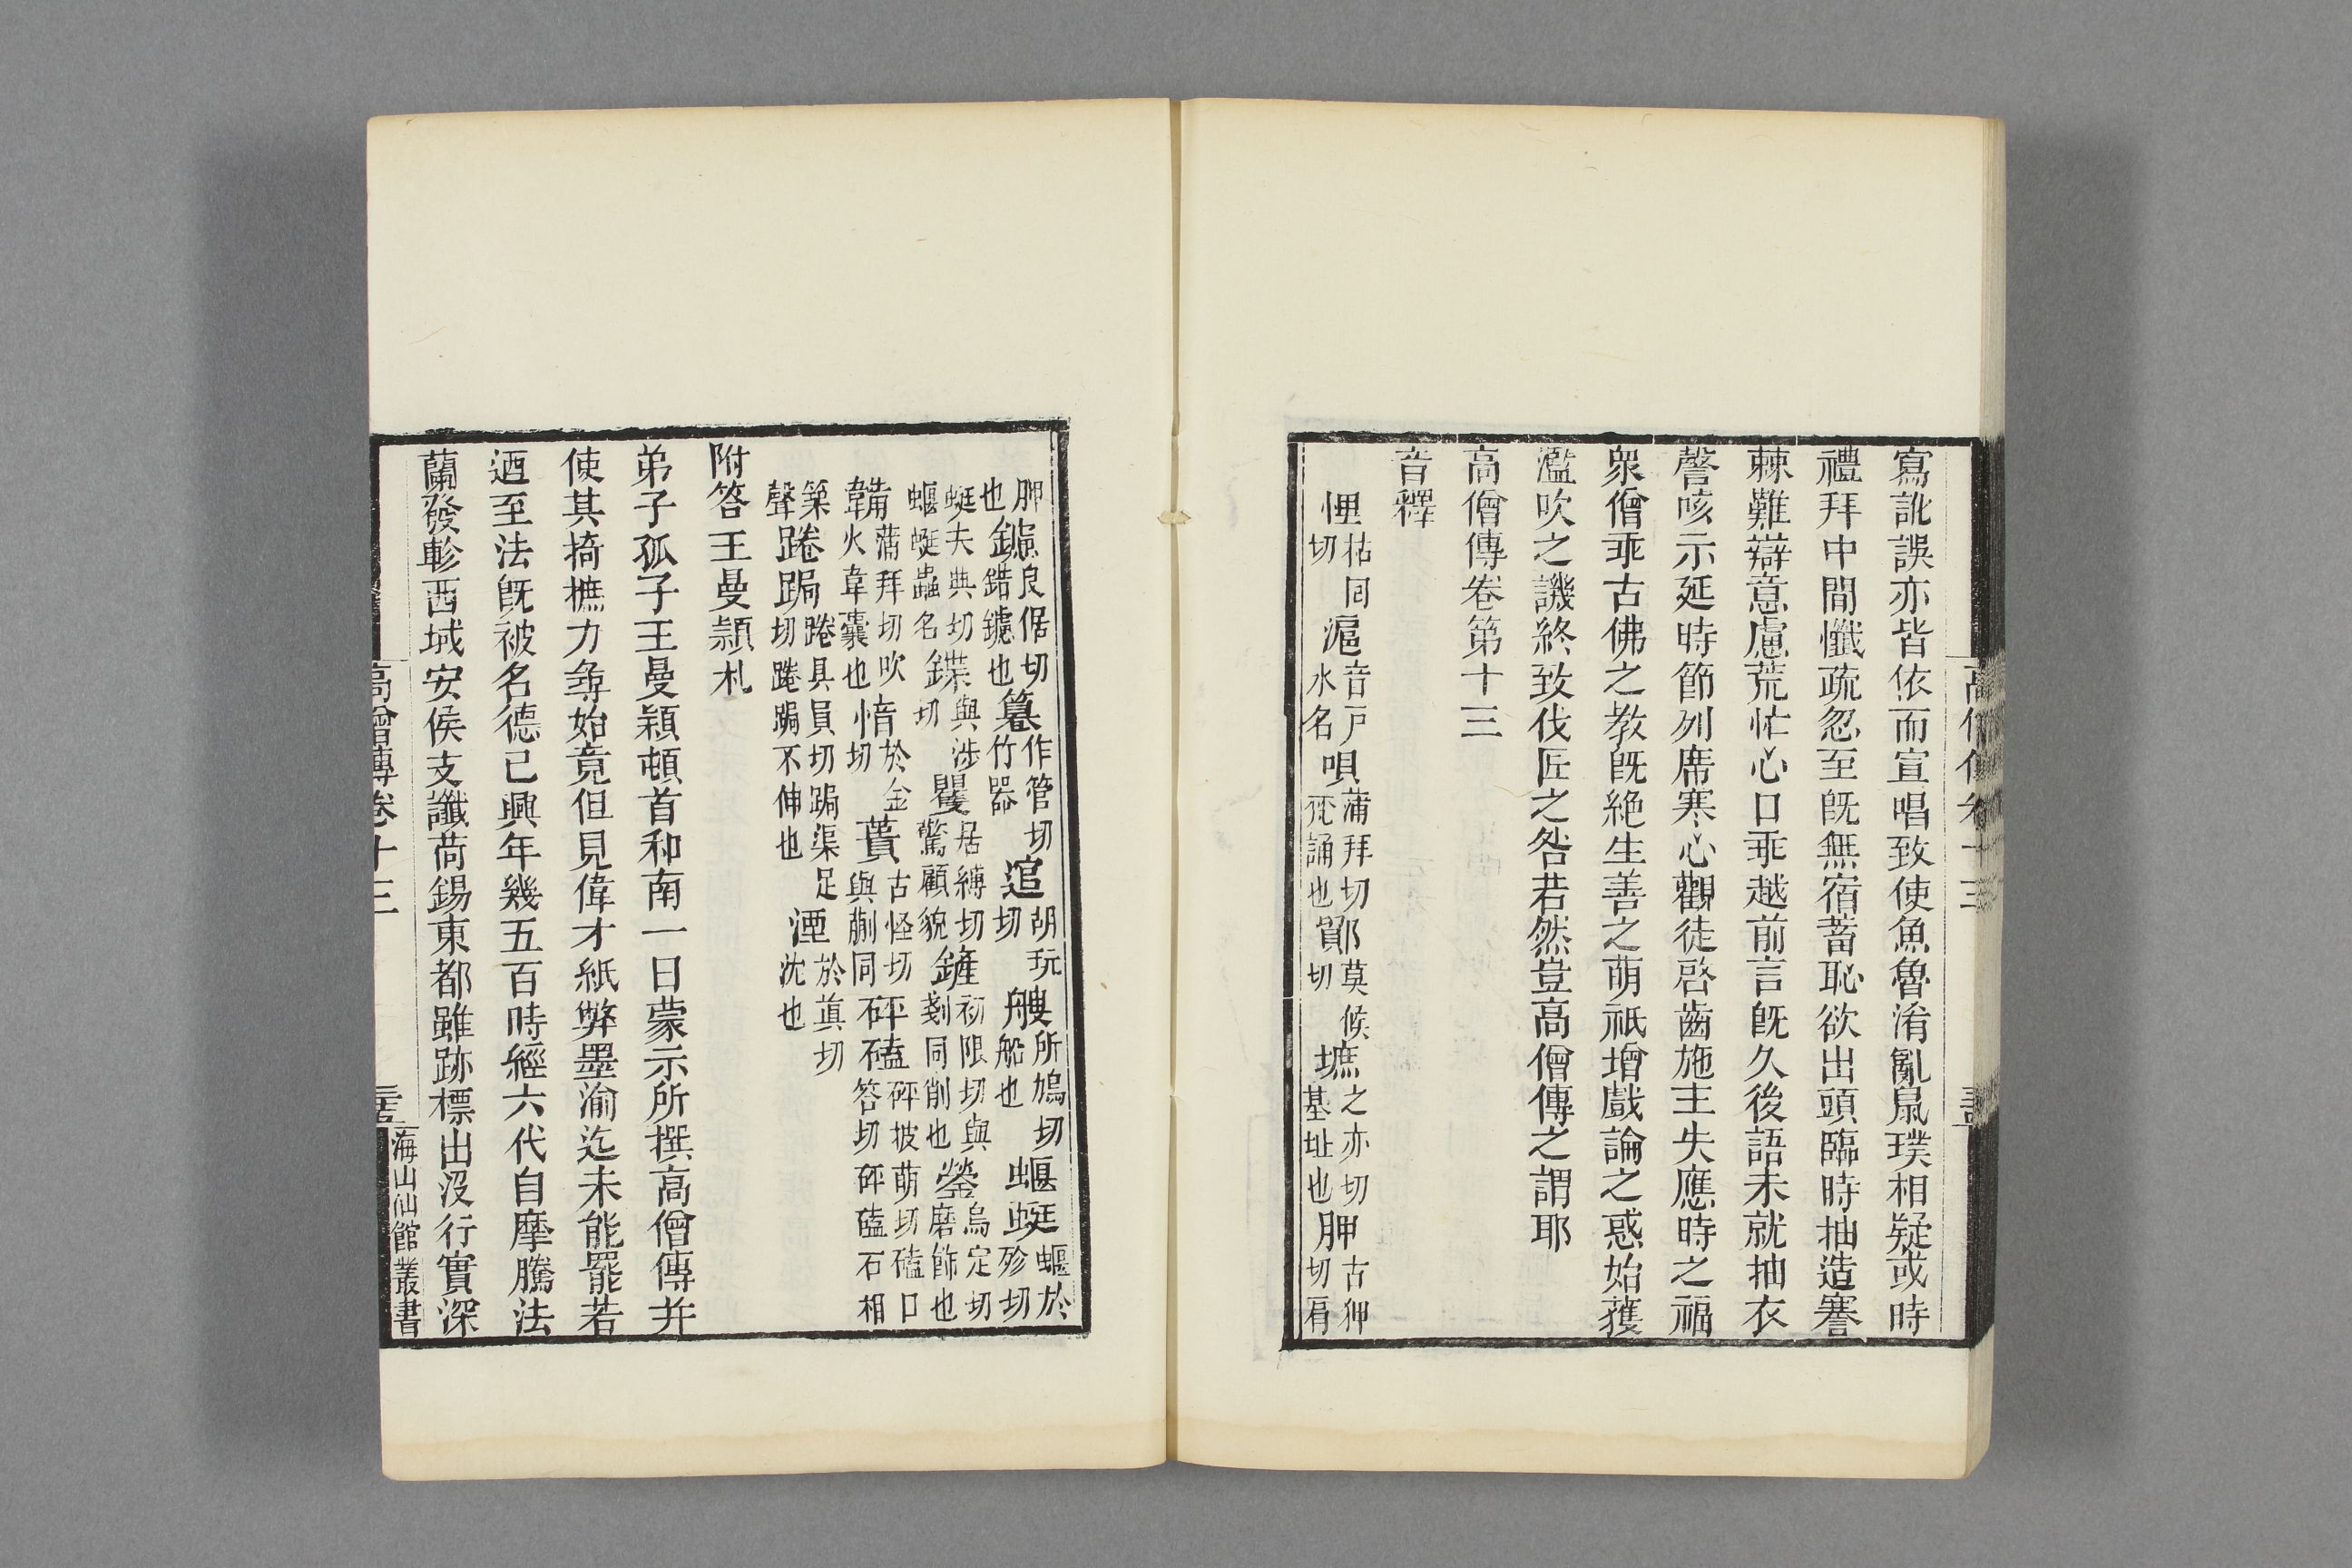 寫訛誤亦皆依而宣唱致使魚魯淆亂鼠璞相疑或時
禮拜中間懺疏忽至旣無宿蓄恥欲出頭臨時抽造謇
棘難辯意慮荒忙心口乖越前言旣久後語未就抽衣
謦咳示延時節列席寒心觀徒啓齒施主失應時之福
衆僧乖古佛之教旣絶生善之萌祇增戲論之惑始獲
濫吹之譏終致伐匠之咎若然豈高僧傳之謂耶
高僧傳卷第十三
音釋
悝枯回切滬音戸水名唄蒲拜切梵誦也貿莫候切墌之亦切基址也胛古狎切肩
胛也鑢良倨切錯鑢也籑作管切竹器逭胡玩切艘所鳩切船也蝘蜓蝘於殄切
蜓夫典切蝘蜓蟲名鍱與涉切矍居縛切驚顧貌鏟初限切與剗同削也瑩烏定切磨飾也
韛蒲拜切吹火韋囊也愔於金切蕢古怪切與蒯同砰磕砰披萌切磕口答切砰磕石相
築聲踡跼踡具員切跼渠足切踡跼不伸也湮於眞切沈也
附答王曼頴札
弟子孤子王曼穎頓首和南一日蒙示所撰高僧傳并
使其掎摭力尋始竟但見偉才紙弊墨渝迄未能罷若
迺至法旣被名德已興年幾五百時經六代自摩騰法
蘭發軫西域安侯支讖荷錫東都雖跡標出没行實深
高僧傳卷十三
海山仙館叢書